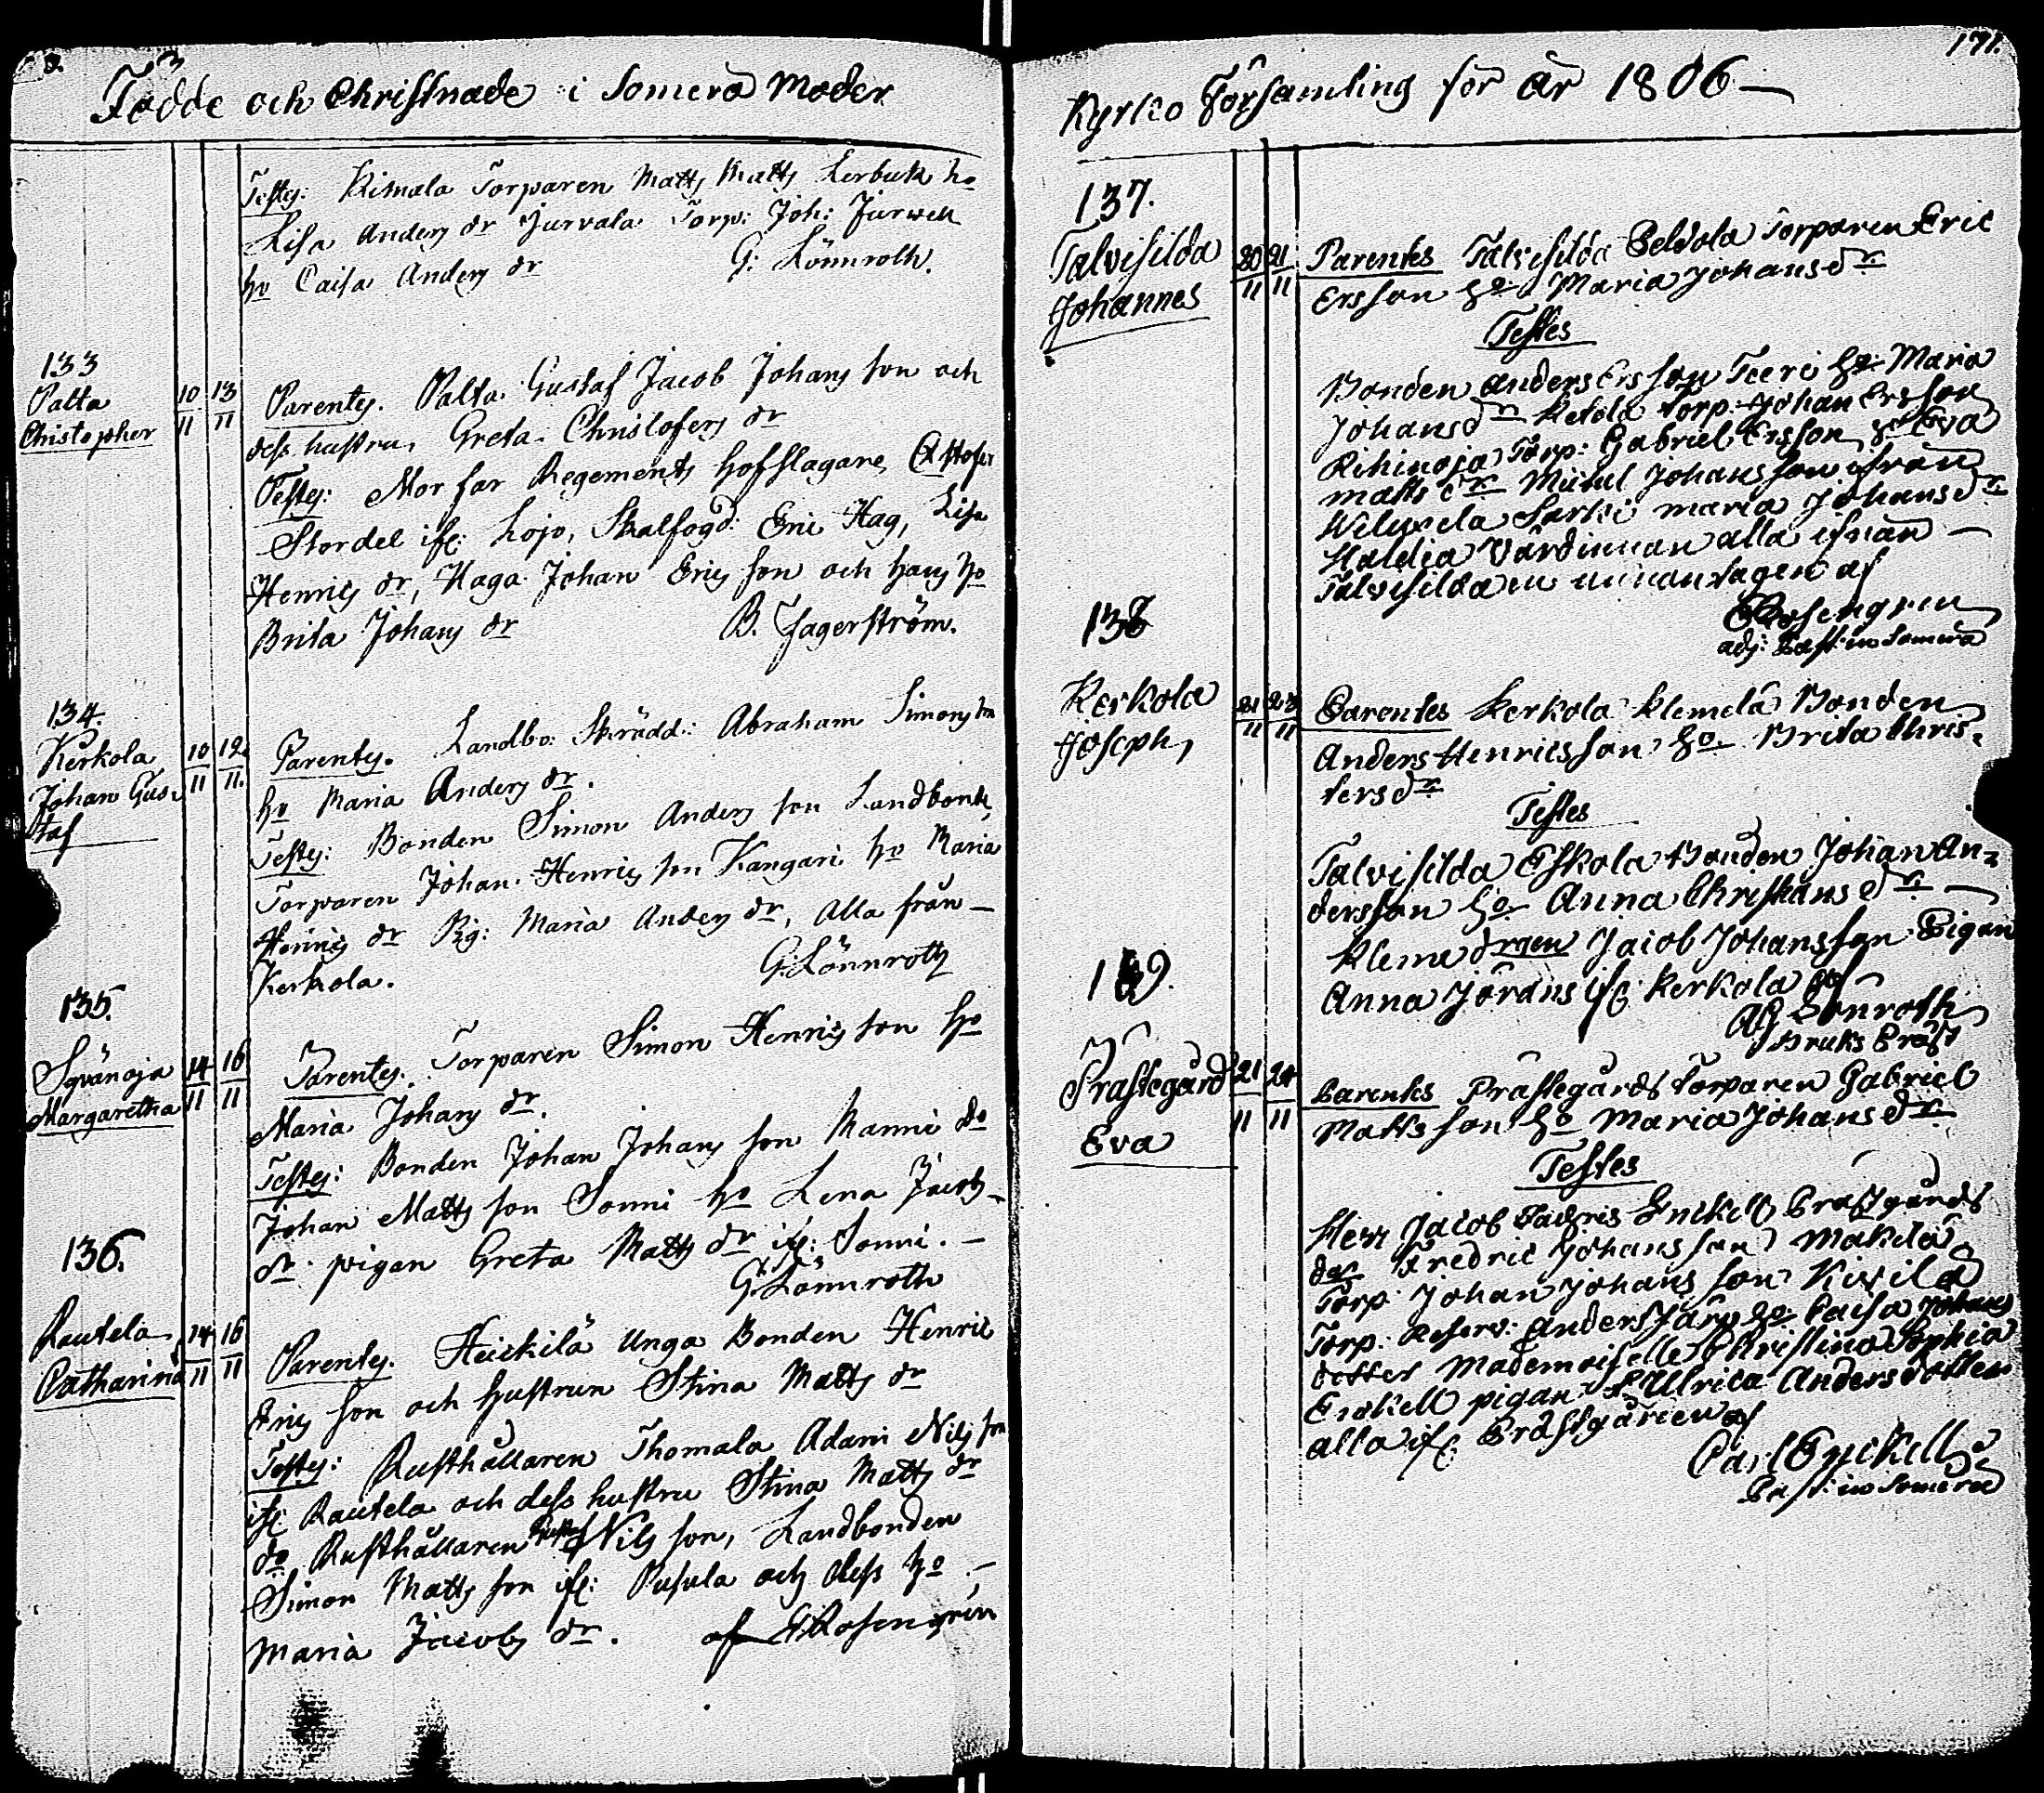 Födde och Christnade i Somero Moder
Testes: Kimala Torparen Matts Matts Lerbuk ho
Lisa Anders dr Jurvala Torp: Joh: Jurwell
ho Caisa Anders dr G: Lönnroth.
133
Palta
Christopher
10 13
11 11
Parentes. Palta Gustaf Jacob Johans son och
dess hustru, Greta Christofers dr
Testes: Mor far Regements hofslagare
Stordel ifr: Lojo, Skalfogd: Eric Hag, Lisa
Henrics dr, Haga Johan Erics son och hans ho
Brita Johans dr B. Fagerström.
134.
Kerkola
Johan Gus-
taf
10 12
11 11.
Parentes. Landbo: Skrädd: Abraham Simons son
ho Maria Anders dr.
Testes: Bonden Simon Anders son
Torparen Johan Henrics son Kangari ho Maria
Henrics dr Pig: Maria Anders dr, Alla från –
Kerkola. G: Lönnroth
135.
Syvänoja
Margaretha
14 16
11 11
Parentes. Torparen Simon Henrics son ho
Maria Johans dr.
Testes: Bonden Johan Johans son Manni do
Johan Matts son Sonni ho Lena Jacobs
dr pigan Greta Matts dr ifr: Sonni. –
G: Lönnroth
136.
Rautela
Catharina
14 16
11 11
Parentes. Heickilä Unga Bonden Henric
Erics son och hustrun Stina Matts dr
Testes: Rusthållaren Thomala Adam Nils son
ifr: Rautela och dess hustru Stina Matts dr
do Rusthållaren Nils son, Landbonden
Simon Matts son ifr: Pusula och dess ho –
Maria Jacobs dr. af Rosengrén
171.
Kyrko Församling för år 1806 –
137.
Talvisilda
Johannes
20 21
11 11
Parentes Talvisilda Peldola Torparen Eric
Ersson ho Maria Johans dr
Testes
Bonden Anders Ersson Teeri ho Maria
Johans dr Ketola Torp: Johan Ersson
Rihinoja Torp: Gabriel Ersson ho Eva
Matts dr Michel Johansson ifrån
Sarki Maria Johans dr
Värdinnan alla ifrån –
Talvisilda af
Rosengren
adj: Past: in Somero
138
Kerkola
Joseph
21 23
11 11
Parentes Kerkola Klemelä Bonden
Anders Henricsson ho Brita Chris-
ters dr
Testes
Talvisilda Eskola Bonden Johan An-
dersson ho Anna Christians dr –
Kleme drgen Jacob Johansson Pigan
Anna Jörans ifr: Kerkola af
Lönroth
Bruks Präst
139.
Prästegård
Eva
21 24
11 11
Parentes Prästegårds Torparen Gabriel
Matts son ho Maria Johans dr
Testes
Herr Jacob Enckell Prästgårds
Fredric Johansson Mäkelä
Torp: Johan Johans son Kivilä
Torp: Reserv: Anders ho Caisa Johans
dotter Mademoiselle Christina Sophia
Enckell pigan Ulrica Anders dotter
alla ifr: Prästgården af
Carl Enckell
Past: in Somero